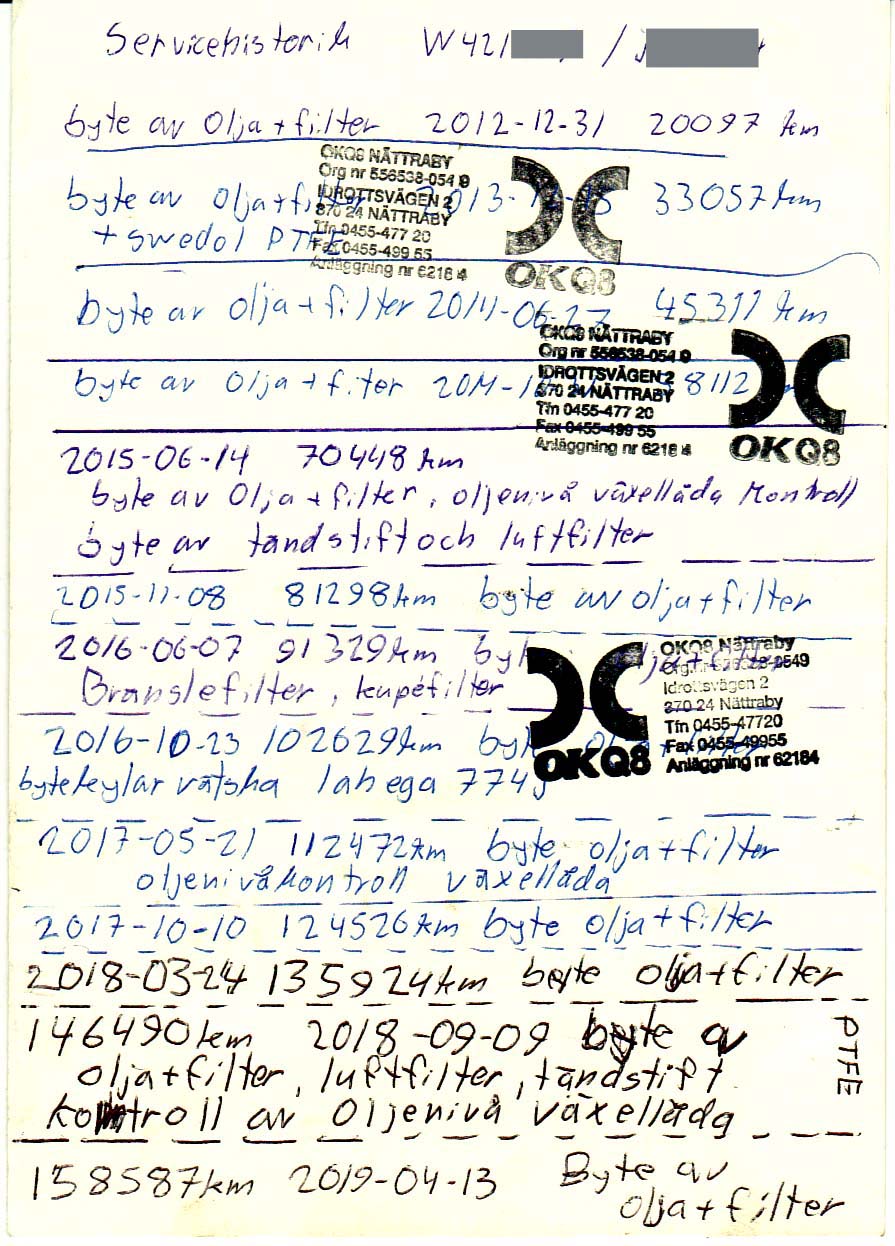 Servicehistorik W421 /
byte av olja + filter 2012-12-31 20097 km
OKQ8 NÄTTRABY
Org nr 556538-054 9
IDROTTSVÄGEN 2
370 24 NÄTTRABY
Tfn 0455-477 20
Fax 0455-499 55
Anläggning nr 6218 4
OKQ8
byte av olja + filter 2013-12-15 33057 km
+ swedol PTFE
byte av olja + filter 2014-06-27 45311 km
OKQ8 NÄTTRABY
Org nr 556538-054 9
IDROTTSVÄGEN 2
370 24 NÄTTRABY
Tfn 0455-477 20
Fax 0455-499 55
Anläggning nr 6218 4
OKQ8
byte av olja + filter 2014-1 8112
2015-06-14 70448 km
byte av olja + filter, oljenivå växellåda kontroll
byte av tändstift och luftfilter
2015-11-08 81298 km byte av olja + filter
2016-06-07 91329 km byte olja + filter
Bränslefilter, kupéfilter
OKQ8 Nättraby
Org.nr 556538-0549
Idrottsvägen 2
370 24 Nättraby
Tfn 0455-47720
Fax 0455-49955
Anläggning nr 62184
OKQ8
2016-10-23 102629 km byte olja + filter
byte kylar vätska lahega 774
2017-05-21 112472 km byte olja + filter
oljenivåkontroll växellåda
2017-10-10 124526 km byte olja + filter
2018-03-24 135924 km byte olja + filter
146490 km 2018-09-09 byte av
olja + filter, luftfilter, tändstift
kontroll av Oljenivå växellåda
PTFE
158587 km 2019-04-13 Byte av
olja + filter